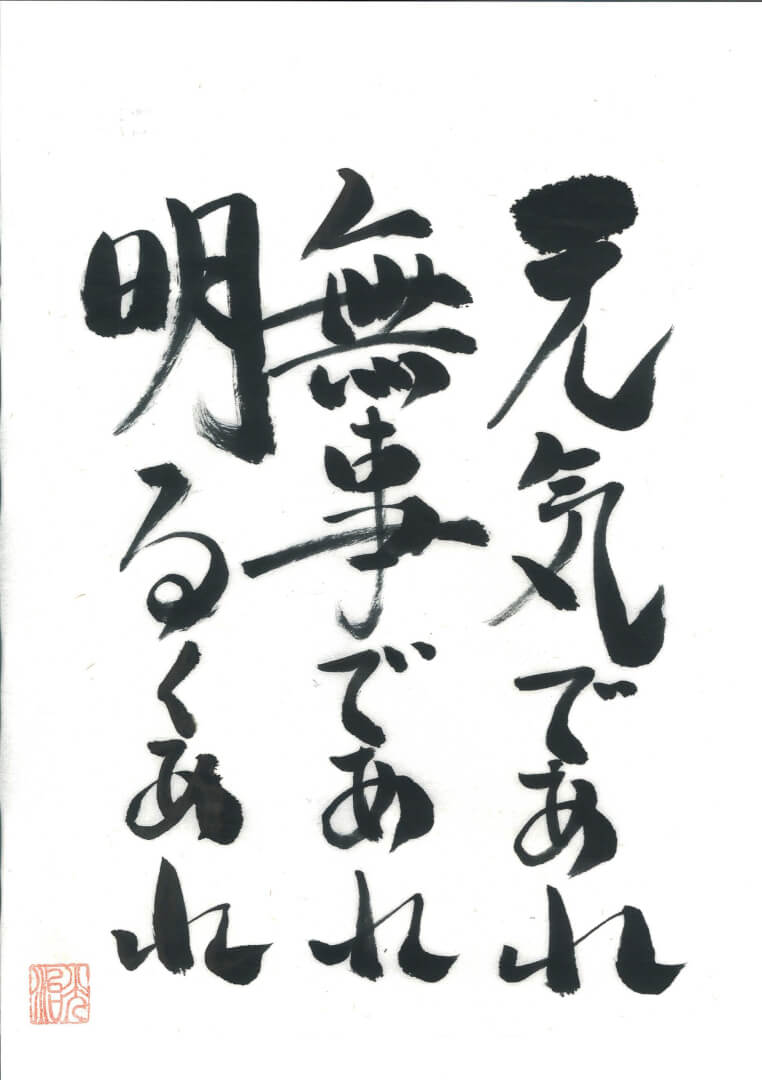 元気であれ
無事であれ
明るくあれ